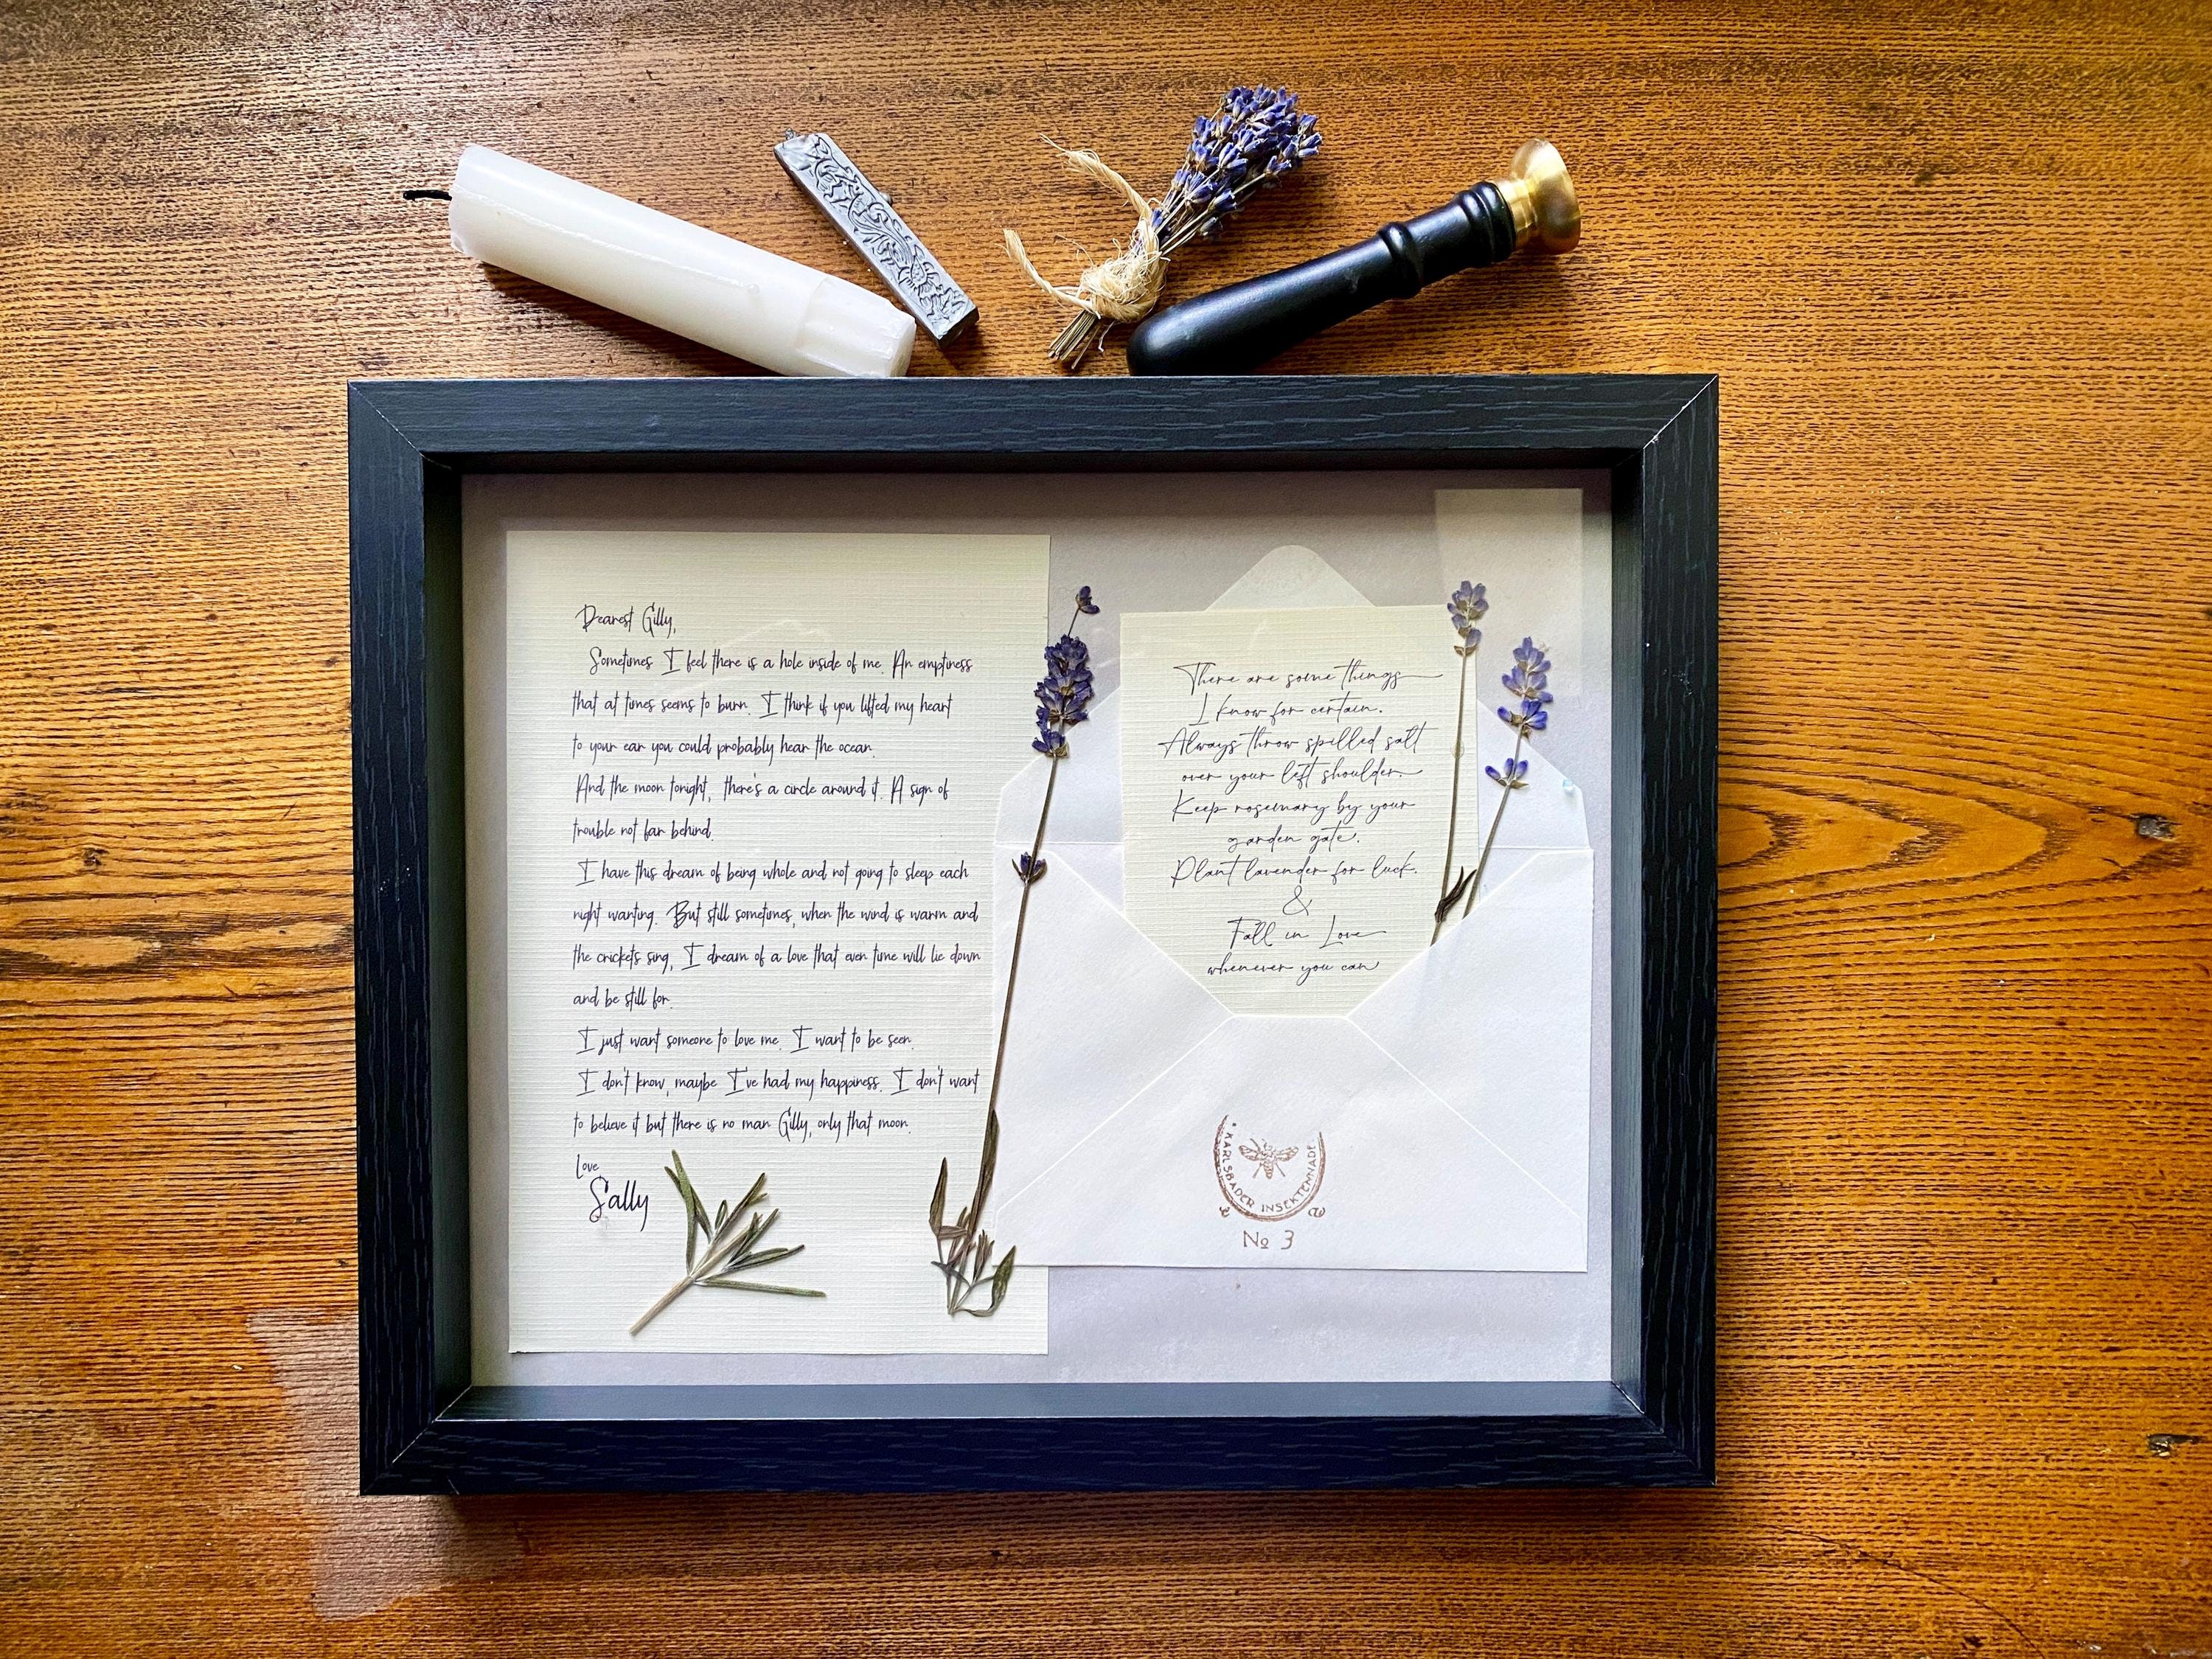 Dearest Gilly,
Sometimes I feel there is a hole inside of me. An emptiness
that at times seems to burn. I think if you lifted my heart
to your ear you could probably hear the ocean.
And the moon tonight, there's a circle around it. A sign of
trouble not far behind.
I have this dream of being whole and not going to sleep each
night wanting. But still sometimes, when the wind is warm and
the crickets sing, I dream of a love that even time will lie down
and be still for.
I just want someone to love me. I want to be seen.
I don't know, maybe I've had my happiness. I don't want
to believe it but there is no man Gilly, only that moon.
Love
Sally
There are some things
I know for certain.
Always throw spilled salt
over your left shoulder.
Keep rosemary by your
garden gate.
Plant lavender for luck.
&
Fall in Love
whenever you can
KARLSBADER INSEKTENNADEL
No 3